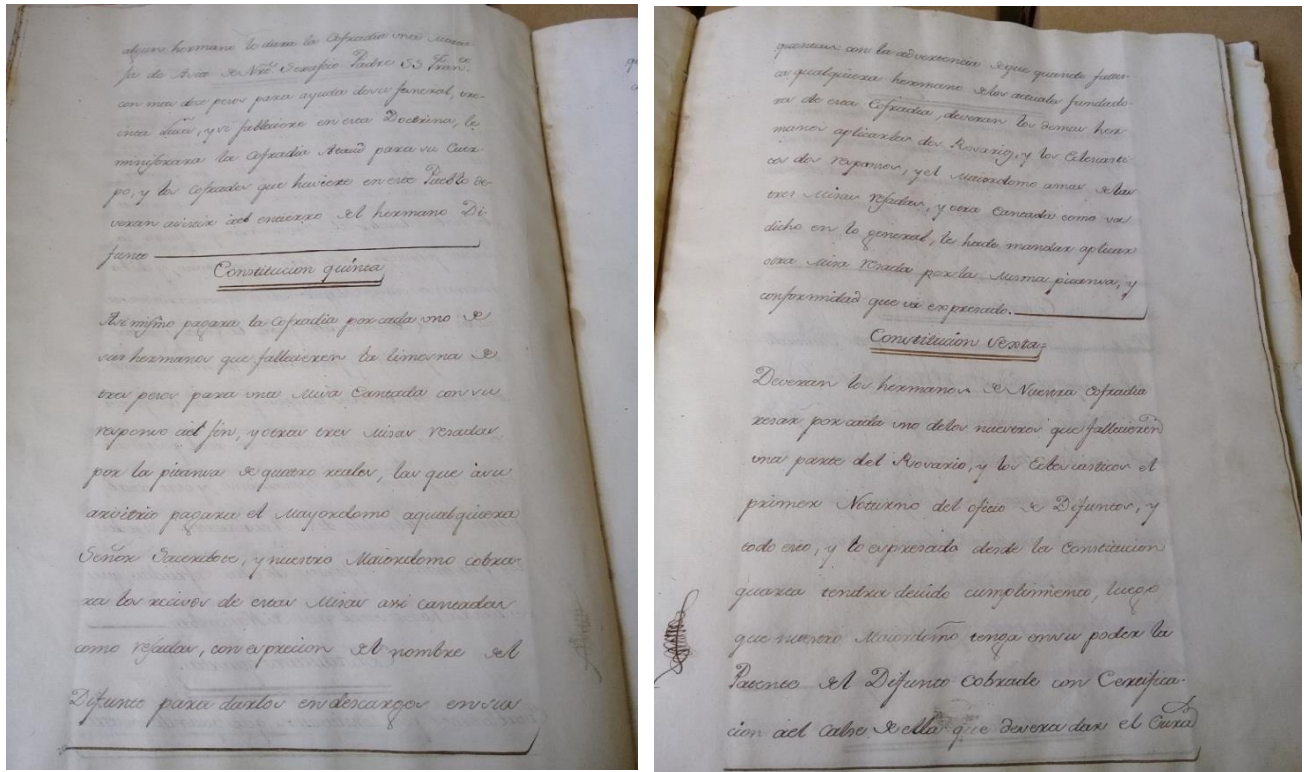 alguno hermano lo dara la Cofradia una Morta-
ja de Avia de Nrō. Serafico Padre Sⁿ Franco.
con mas doze pesos para ayuda de su funeral, tre-
inta y si falleciere en esta Doctrina, le
ministrara la Cofradia Ataud para su Cuer-
po, y los Cofrades que huviere en este Pueblo de-
veran asistir aél entierro del hermano Di-
funto
Constitucion quinta
Asi mismo pagara la Cofradia por cada uno de
sus hermanos que fallecieren la limosna de
tres pesos para una Misa Cantada con su
responso aél fin, y otras tres Misas resadas
por la pitansa de quatro reales, las que á su
arvitrio pagara el Mayordomo a qualquiera
Señor Sacerdote, y nuestro Maiordomo cobra-
ra los recivos de estas Misas asi cantadas
como resadas, con exprecion del nombre del
Difunto para darlos en descargos en sus
quentas con la advertencia de que quando fallie-
ra qualquiera hermano de los actuales fundado-
res de esta Cofradia, deveran los demas her-
manos aplicarles dos Rosarios, y los Eclesiasti-
cos dos responsos, y el Maiordomo a mas de las
tres Misas resadas, y otra Cantada como va
dicho en lo general, le hade mandar aplicar
otra Misa resada por la misma pitansa, y
conformidad que vá expresado.
Constitución Sexta
Deveran los hermanos de Nuestra Cofradia
resar por cada uno delos nuestros que fallecieren
una parte del Rosario, y los Eclesiasticos el
primer Noturno del oficio de Difuntos, y
todo esto, y lo expresado desde la Constitucion
quarta tendra devido cumplimiento, luego
que nuestro Maiordomo tenga en su poder la
Patente del Difunto Cobrade con Certifica-
cion aél Calse de ella que devera dar el Cura